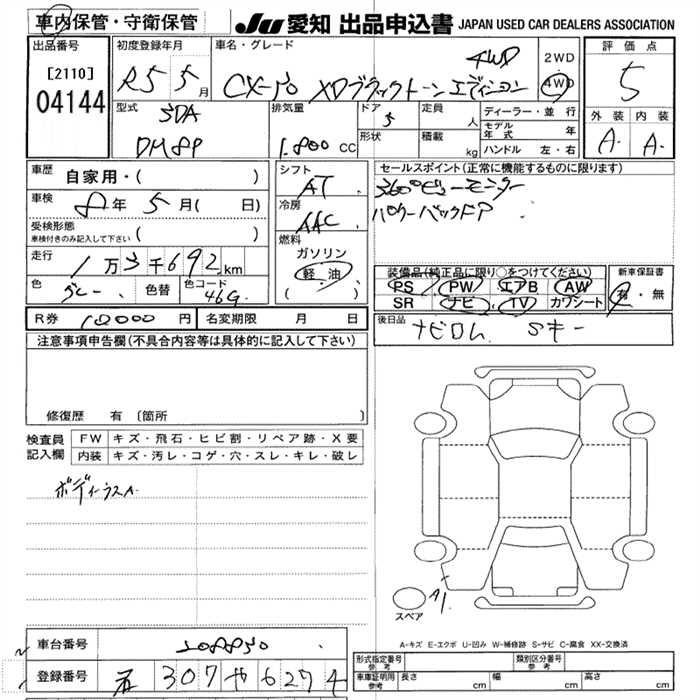 車内保管・守衛保管
JU 愛知 出品申込書 JAPAN USED CAR DEALERS ASSOCIATION
出品番号 [2110] 04144
初度登録年月 R5 年 5月
車名・グレード CX-30 XDブラックトーンエディション 4WD
2WD 4WD
評価点 5
外装 内装
A. A.
型式 3DA DM8P
排気量 1.800 CC
ドア 5 形状
定員 人 積載 kg
ディーラー・並行
モデル年式 年
ハンドル 左・右
車歴 自家用・( )
車検 8年 5月( 日)
受検形態 車検付きのみ記入して下さい ( )
走行 1万3千692km
色 グレー 色替 色コード 46G
シフト AT
冷房 AAC
燃料 ガソリン 軽油 ( )
セールスポイント(正常に機能するものに限ります)
360°ビューモニター
パワーバックドア
装備品(純正品に限り○をつけてください)
PS PW エアB AW
SR ナビ TV カワシート
新車保証書 有・無
R券 10000円 名変期限 月 日
後日品 ナビロム Sキー
注意事項申告欄(不具合内容等は具体的に記入して下さい)
修復歴 有 〔箇所 〕
検査員記入欄
FW キズ・飛石・ヒビ割・リペア跡・X要
内装 キズ・汚レ・コゲ・穴・スレ・キレ・破レ
ボディーうスA
A1
スペア
A-キズ E-エクボ U-凹み W-補修跡 S-サビ C-腐食 XX-交換済
車台番号
登録番号 307 や 6274
形式指定番号 参考 類別区分番号 参考
車庫証明用 参考 長さ cm 幅 cm 高さ cm